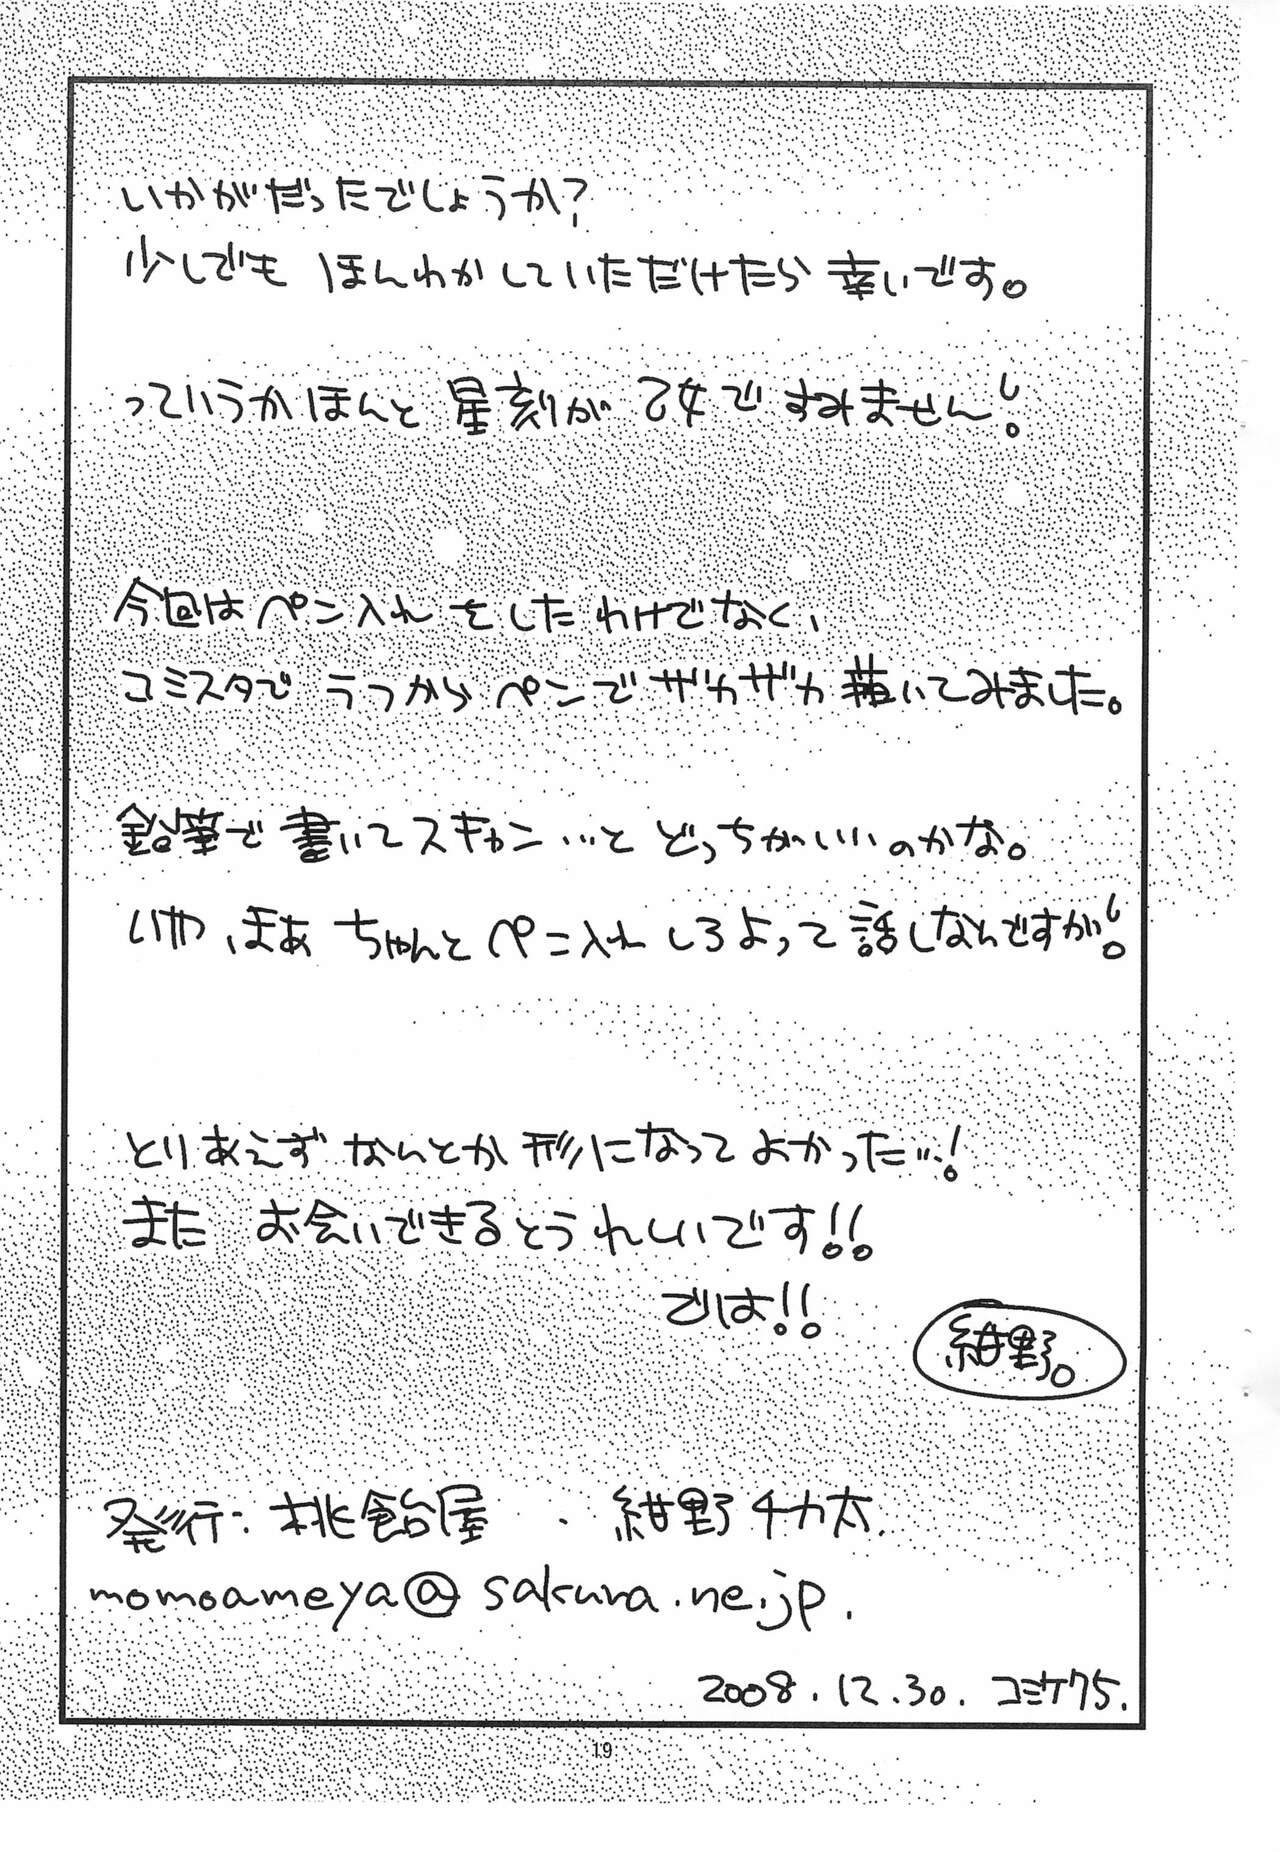 いかがだったでしょうか?
少しでも ほんわかしていただけたら 幸いです。
っていうかほんと 星刻が 乙女で すみません!
今回はペン入れをしたわけでなく、
コミスタで ラフからペンでザカザカ描いてみました。
鉛筆で 書いてスキャン…と どっちがいいのかな。
いや、まあ ちゃんとペン入れしろよって話しなんですが!
とりあえず なんとか形になって よかった…!
また お会いできるとうれしいです!!
では!!
紺野。
発行: 桃飴屋 . 紺野チカ太.
momoameya@sakura.ne.jp.
2008.12.30. コミケ75.
19